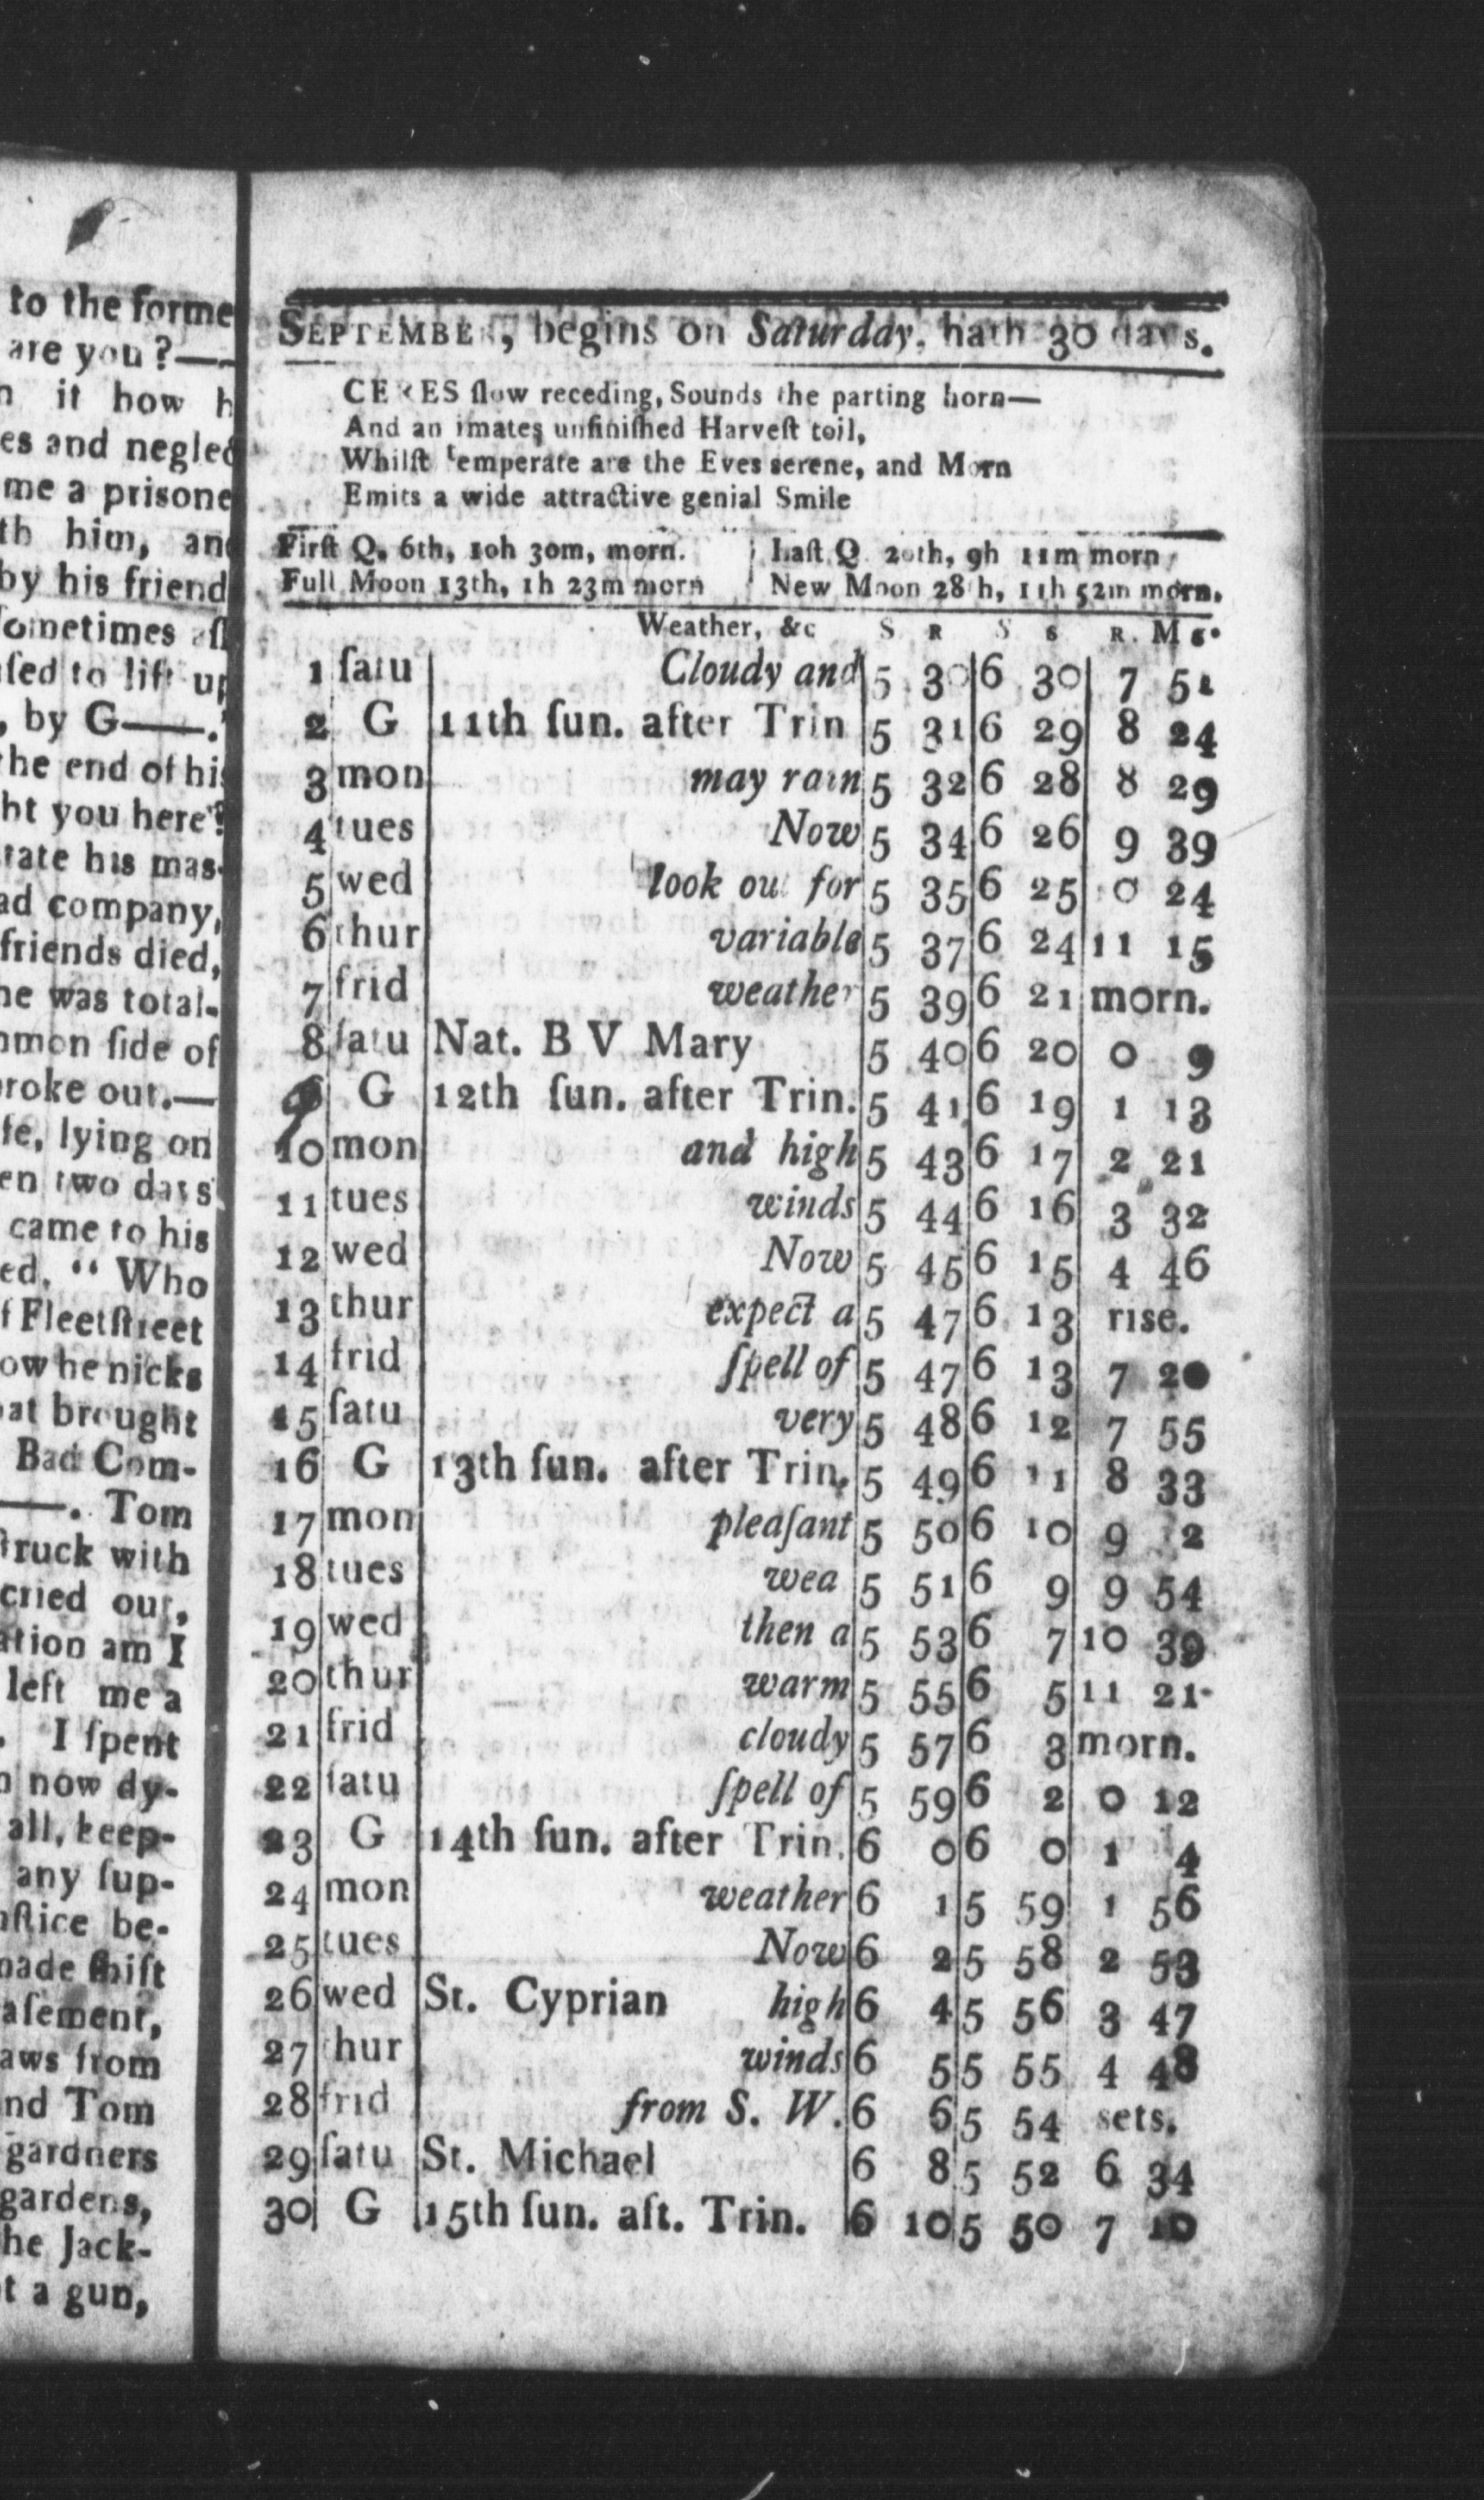 to the forme
are you?—
n it how h
es and neglec
me a prisone
th him, and
by his friend
ſometimes aſſ
ſed to lift up
, by G——.
the end of his
ht you here?
tate his maſ-
ad company,
friends died,
he was total-
mmon ſide of
broke out.—
fe, lying on
en two days
came to his
ed. “ Who
f Fleetſtreet
ow he nicks
hat brought
Bad Com-
——. Tom
ſtruck with
cried out,
ation am I
left me a
. I ſpent
n now dy-
all, keep-
any ſup-
uſtice be-
made ſhift
aſement,
aws from
nd Tom
gardners
gardens,
he Jack-
t a gun,
SEPTEMBER, begins on Saturday, hath 30 days.
CERES ſlow receding, Sounds the parting horn—
And an imates unfiniſhed Harveſt toil,
Whilſt temperate are the Eves serene, and Morn
Emits a wide attractive genial Smile
Firſt Q. 6th, 10h 30m, morn. Laſt Q 20th, 9h 11m morn
Full Moon 13th, 1h 23m morn New Moon 28th, 11h 52m morn.
Weather, &c S R S s R. M s.
1 ſatu Cloudy and 5 30 6 30 7 51
2 G 11th ſun. after Trin 5 31 6 29 8 24
3 mon may rain 5 32 6 28 8 29
4 tues Now 5 34 6 26 9 39
5 wed look out for 5 35 6 25 0 24
6 thur variable 5 37 6 24 11 15
7 frid weather 5 39 6 21 morn.
8 ſatu Nat. B V Mary 5 40 6 20 0 9
9 G 12th ſun. after Trin. 5 41 6 19 1 13
10 mon and high 5 43 6 17 2 21
11 tues winds 5 44 6 16 3 32
12 wed Now 5 45 6 15 4 46
13 thur expect a 5 47 6 13 rise.
14 frid ſpell of 5 47 6 13 7 20
15 ſatu very 5 48 6 12 7 55
16 G 13th ſun. after Trin. 5 49 6 11 8 33
17 mon pleaſant 5 50 6 10 9 2
18 tues wea 5 51 6 9 9 54
19 wed then a 5 53 6 7 10 39
20 thur warm 5 55 6 5 11 21
21 frid cloudy 5 57 6 3 morn.
22 ſatu ſpell of 5 59 6 2 0 12
23 G 14th ſun. after Trin. 6 0 6 0 1 4
24 mon weather 6 1 5 59 1 56
25 tues Now 6 2 5 58 2 53
26 wed St. Cyprian high 6 4 5 56 3 47
27 thur winds 6 5 5 55 4 48
28 frid from S. W. 6 6 5 54 sets.
29 ſatu St. Michael 6 8 5 52 6 34
30 G 15th ſun. aft. Trin. 6 10 5 50 7 10